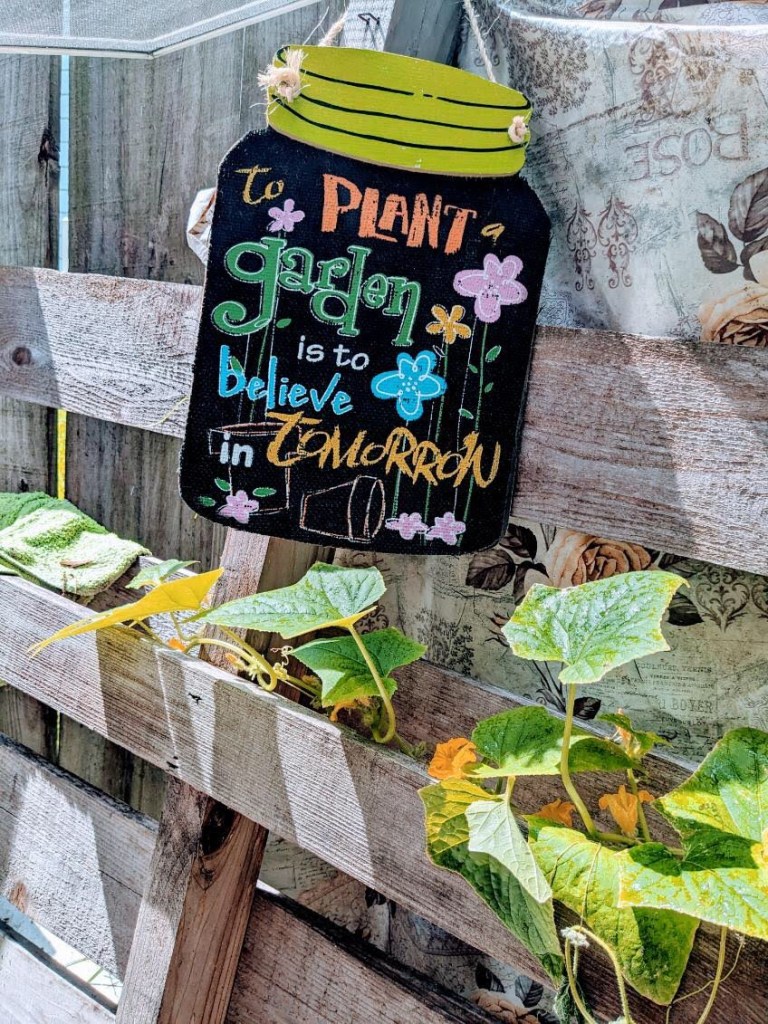 to PLANT a
garden
is to
believe
in TOMORROW
ROSE
BOYER